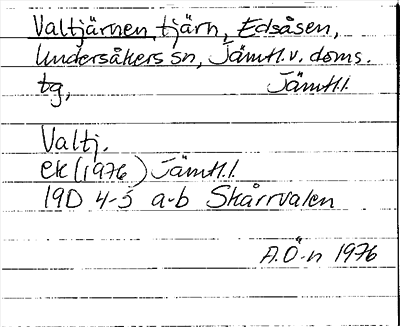 Valtjärnen tjärn, Edsåsen,
Undersåkers sn, Jämtl.v. doms.
tg, Jämtl.l.
Valtj.
ek (1976) Jämtl.l.
19D 4-5 a-b Skårrvalen
A.Ö-n 1976